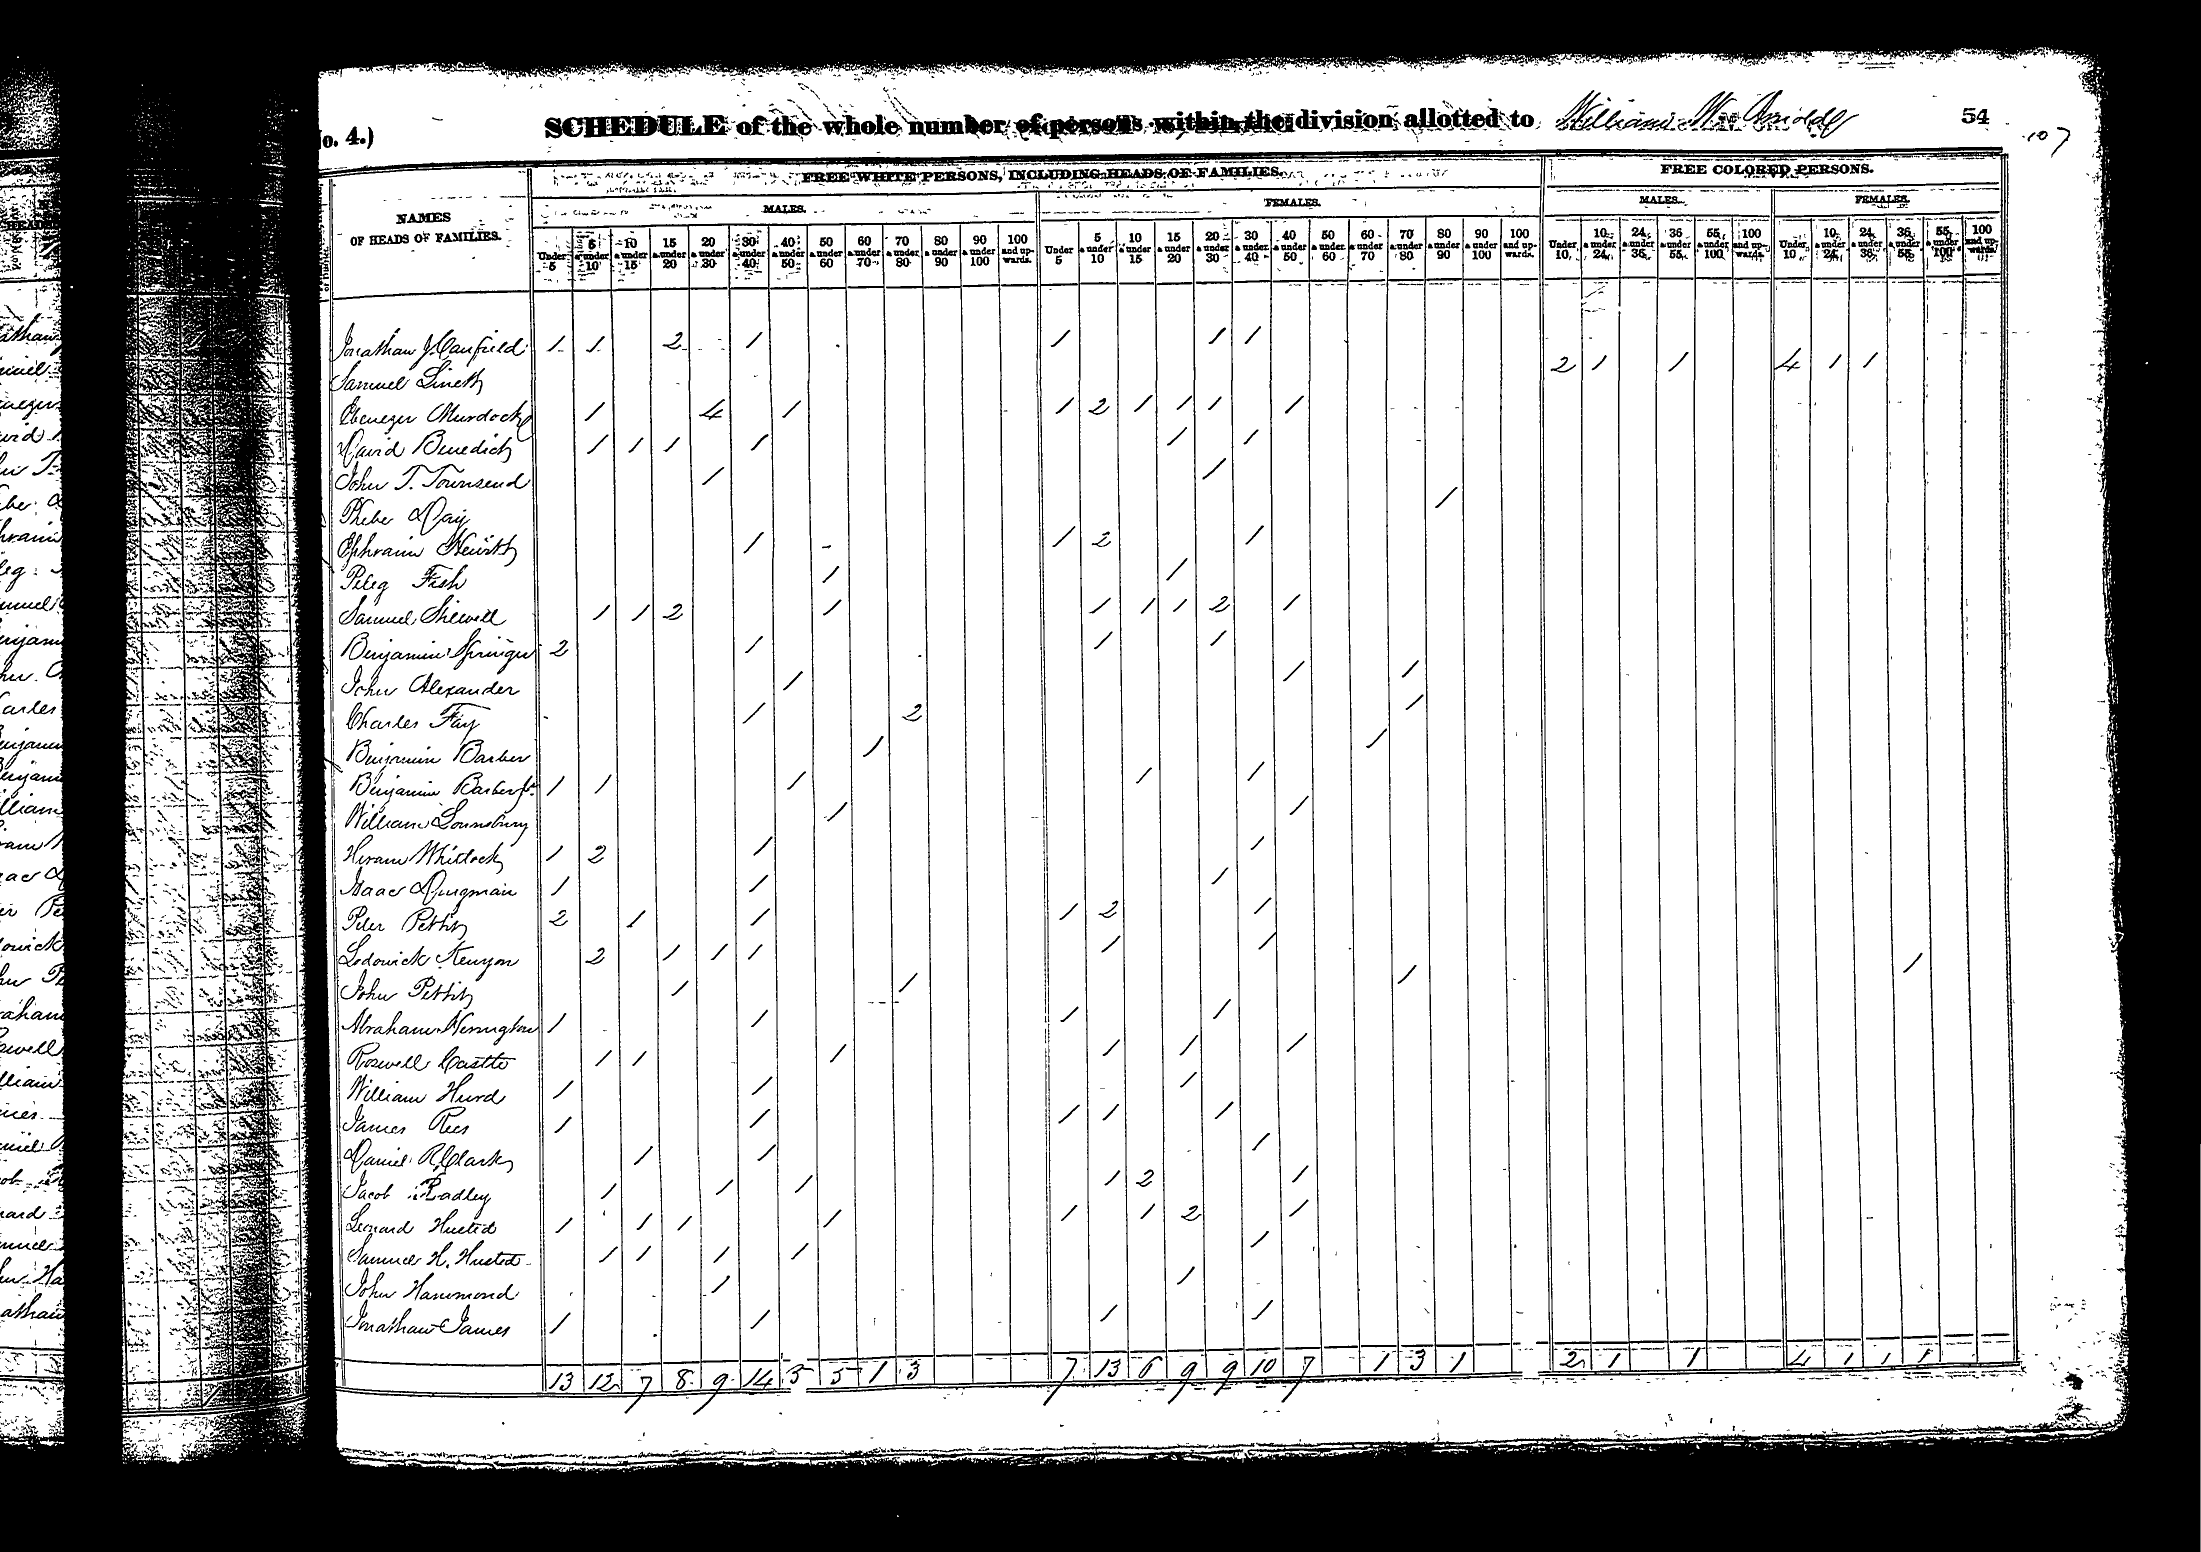 o. 4.)
SCHEDULE of the whole number of persons within the division allotted to William W. Arnold 54
107
NAMES OF HEADS OF FAMILIES.
FREE WHITE PERSONS, INCLUDING HEADS OF FAMILIES.
FREE COLORED PERSONS.
MALES. FEMALES. MALES. FEMALES.
Under 5 5 & under 10 10 & under 15 15 & under 20 20 & under 30 30 & under 40 40 & under 50 50 & under 60 60 & under 70 70 & under 80 80 & under 90 90 & under 100 100 and upwards. Under 5 5 & under 10 10 & under 15 15 & under 20 20 & under 30 30 & under 40 40 & under 50 50 & under 60 60 & under 70 70 & under 80 80 & under 90 90 & under 100 100 and upwards. Under 10 10 & under 24 24 & under 36 36 & under 55 55 & under 100 100 and upwards. Under 10 10 & under 24 24 & under 36 36 & under 55 55 & under 100 100 and upwards.
Jonathan J. Canfield 1 1 2 1 1 1 1
Samuel 2 1 1 4 1 1
Ebenezer Murdock 1 4 1 1 2 1 1 1 1
David Benedict 1 1 1 1 1 1
John T. Townsend 1 1
Phebe Day 1
Ephraim Hewitt 1 1 2 1
Peleg Fish 1 1
Samuel Shewell 1 1 2 1 1 1 1 2 1
Benjamin Springer 2 1 1 1
John Alexander 1 1 1
Charles Fay 1 2 1
Benjamin Barber 1 1
Benjamin Barber Jr. 1 1 1 1 1
William Lounsbury 1 1
Hiram Whitlock 1 2 1 1
Isaac Dingman 1 1 1
Peter Pettit 2 1 1 1 2 1
Lodowick Kenyon 2 1 1 1 1 1
John Pettit 1 1 1 1
Abraham Herrington 1 1 1 1
Roswell Castle 1 1 1 1 1 1
William Hurd 1 1 1
James Rees 1 1 1 1 1
Daniel R. Clark 1 1 1
Jacob Radley 1 1 1 1 2 1
Leonard Husted 1 1 1 1 1 1 2 1
Samuel H. Husted 1 1 1 1 1
John Hammond 1 1
Jonathan James 1 1 1 1
13 12 7 8 9 14 5 5 1 3 7 13 6 9 9 10 7 1 3 1 2 1 1 4 1 1 1